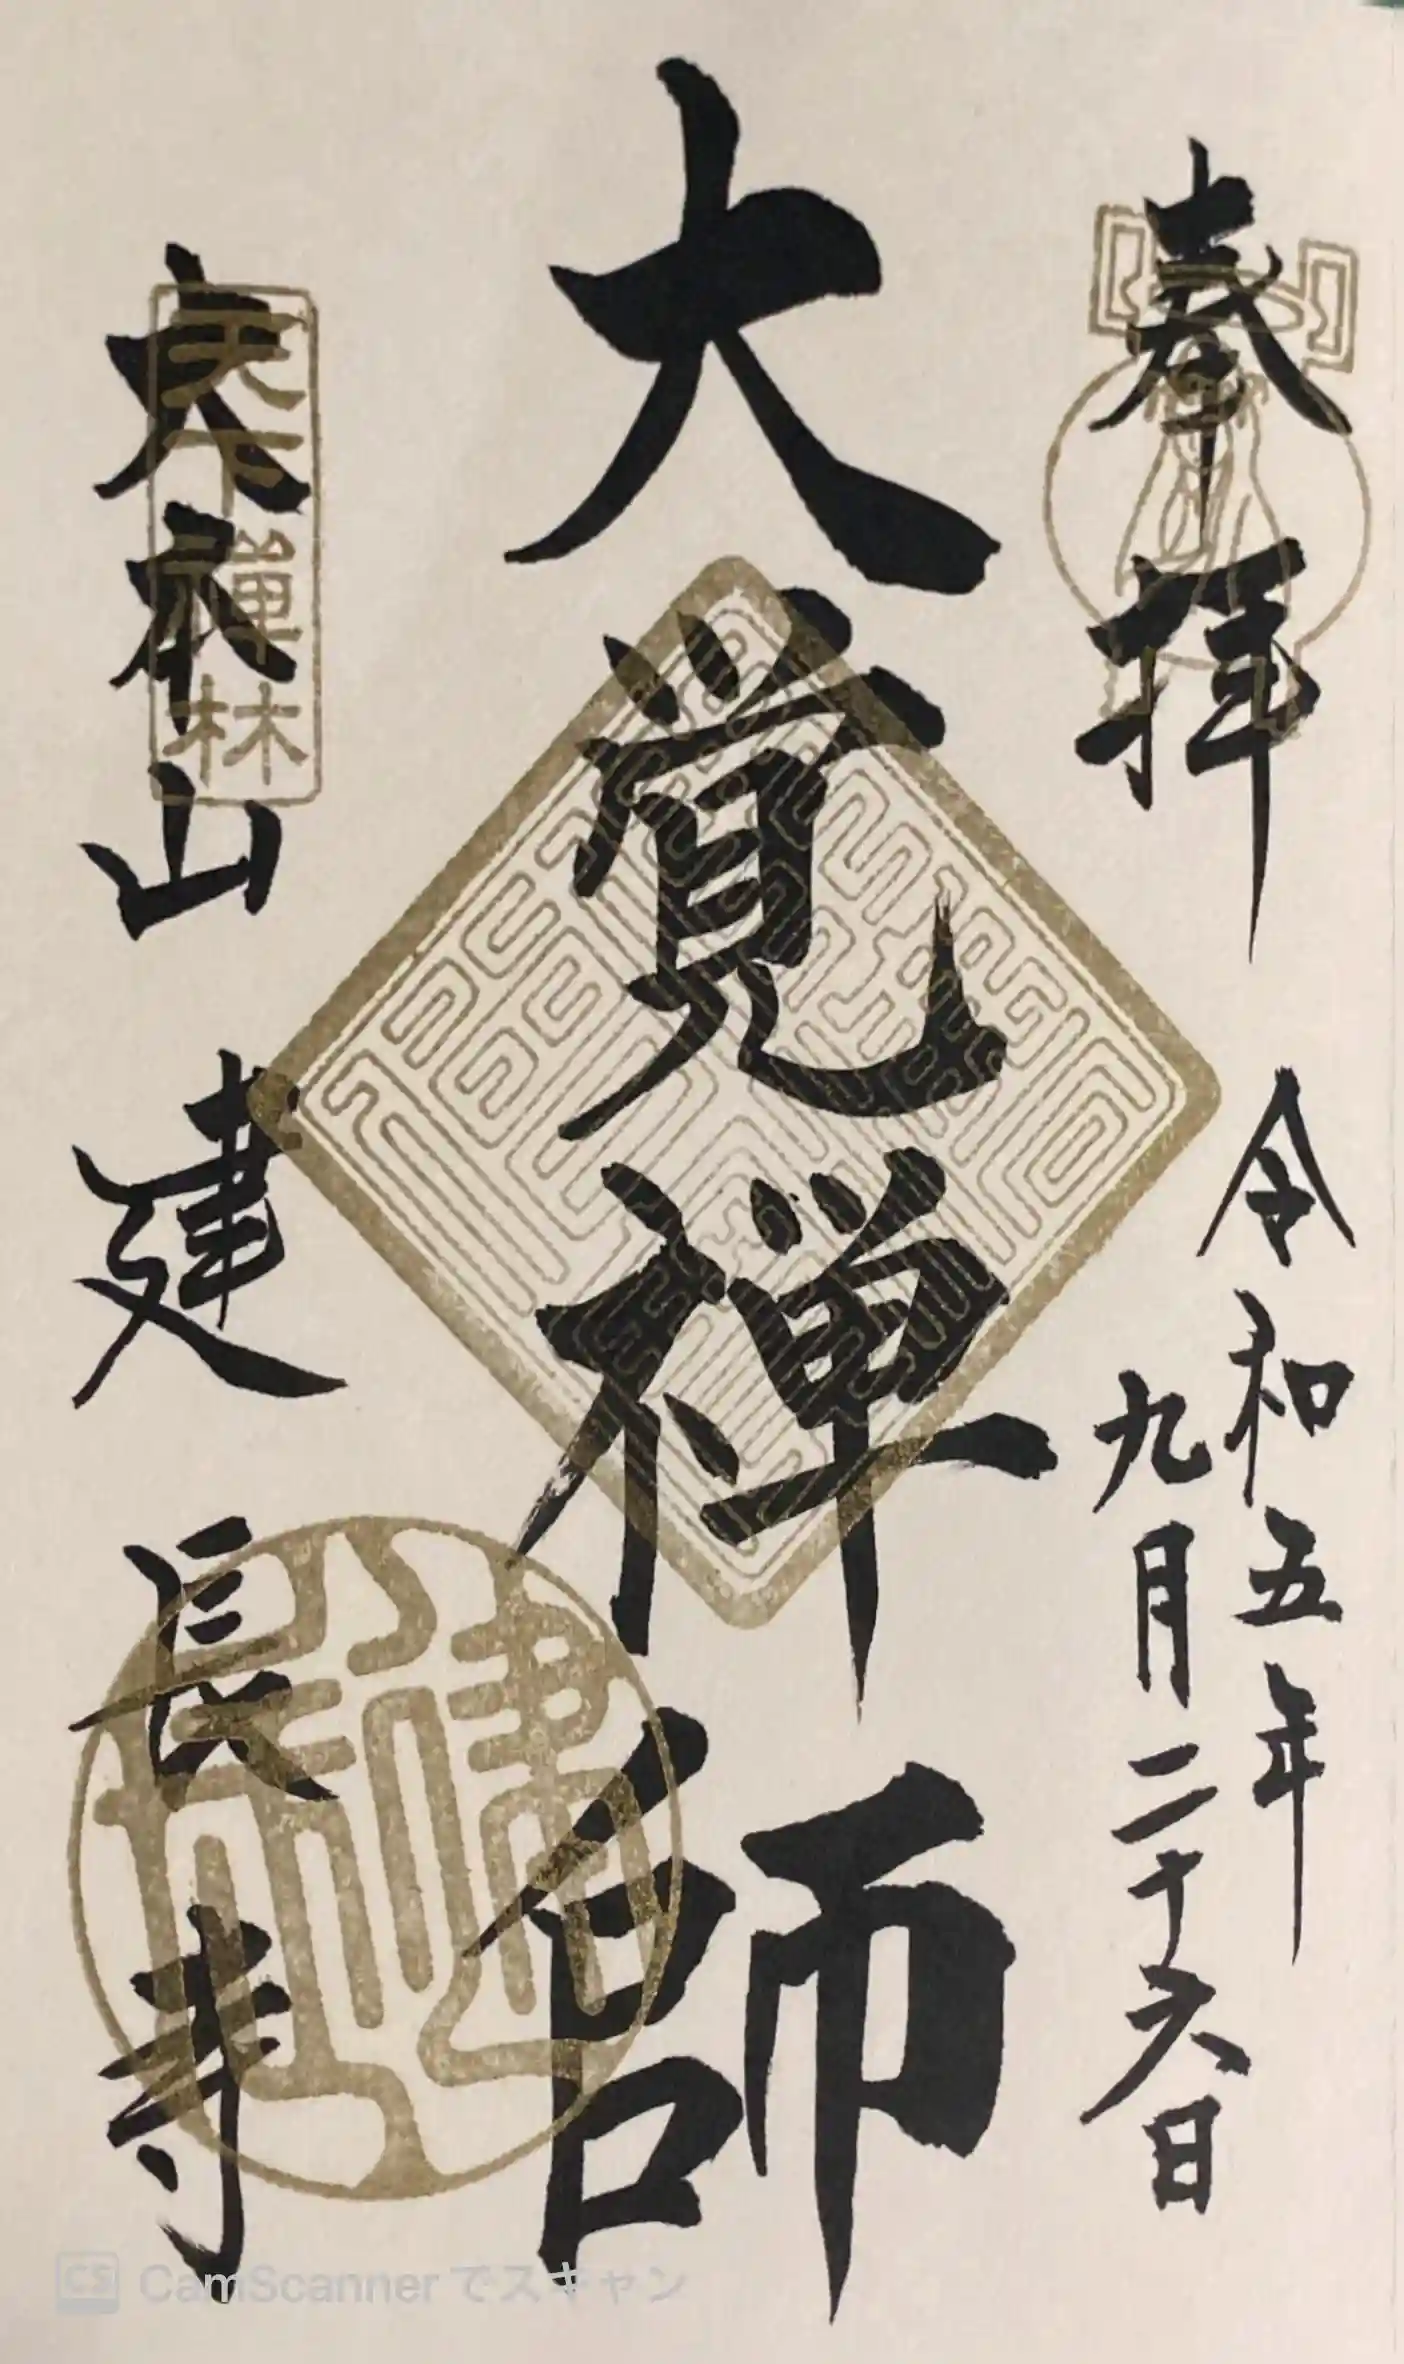 奉拝
令和五年
九月二十六日
大覚禅師
大本山 建長寺
天下禅林
CS CamScanner でスキャン